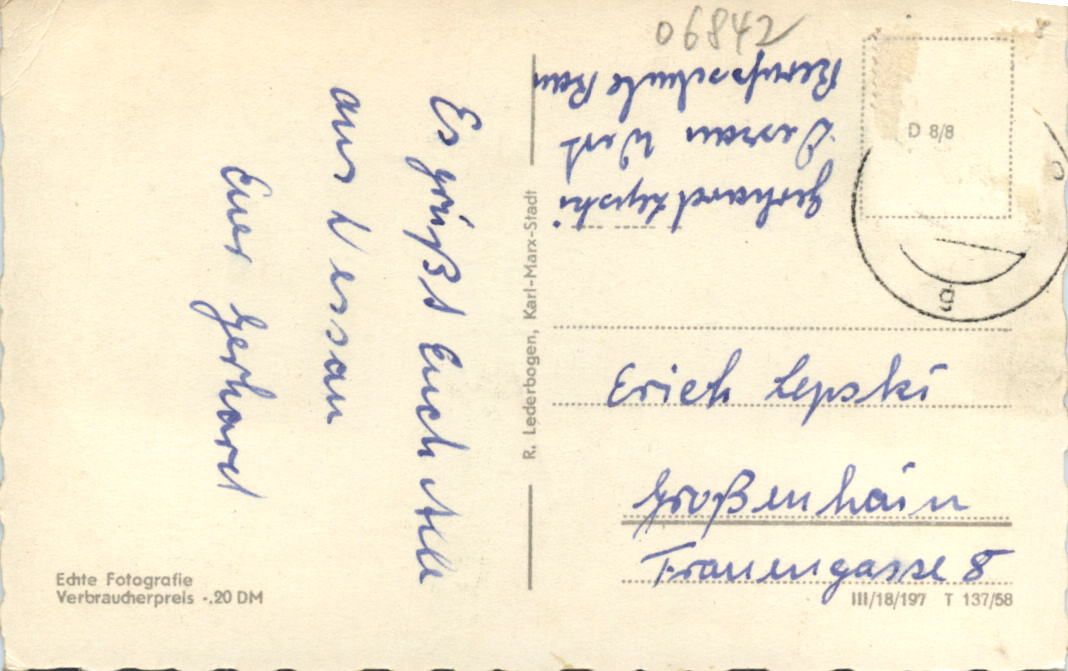 06842
Gerhard Lepski
Dessau
Berufsschule Bau
D 8/8
Es grüßt Euch Alle
aus Dessau
Euer Gerhard
R. Lederbogen, Karl-Marx-Stadt
Erich Lepski
Großenhain
Frauengasse 8
Echte Fotografie
Verbraucherpreis -.20 DM
III/18/197 T 137/58